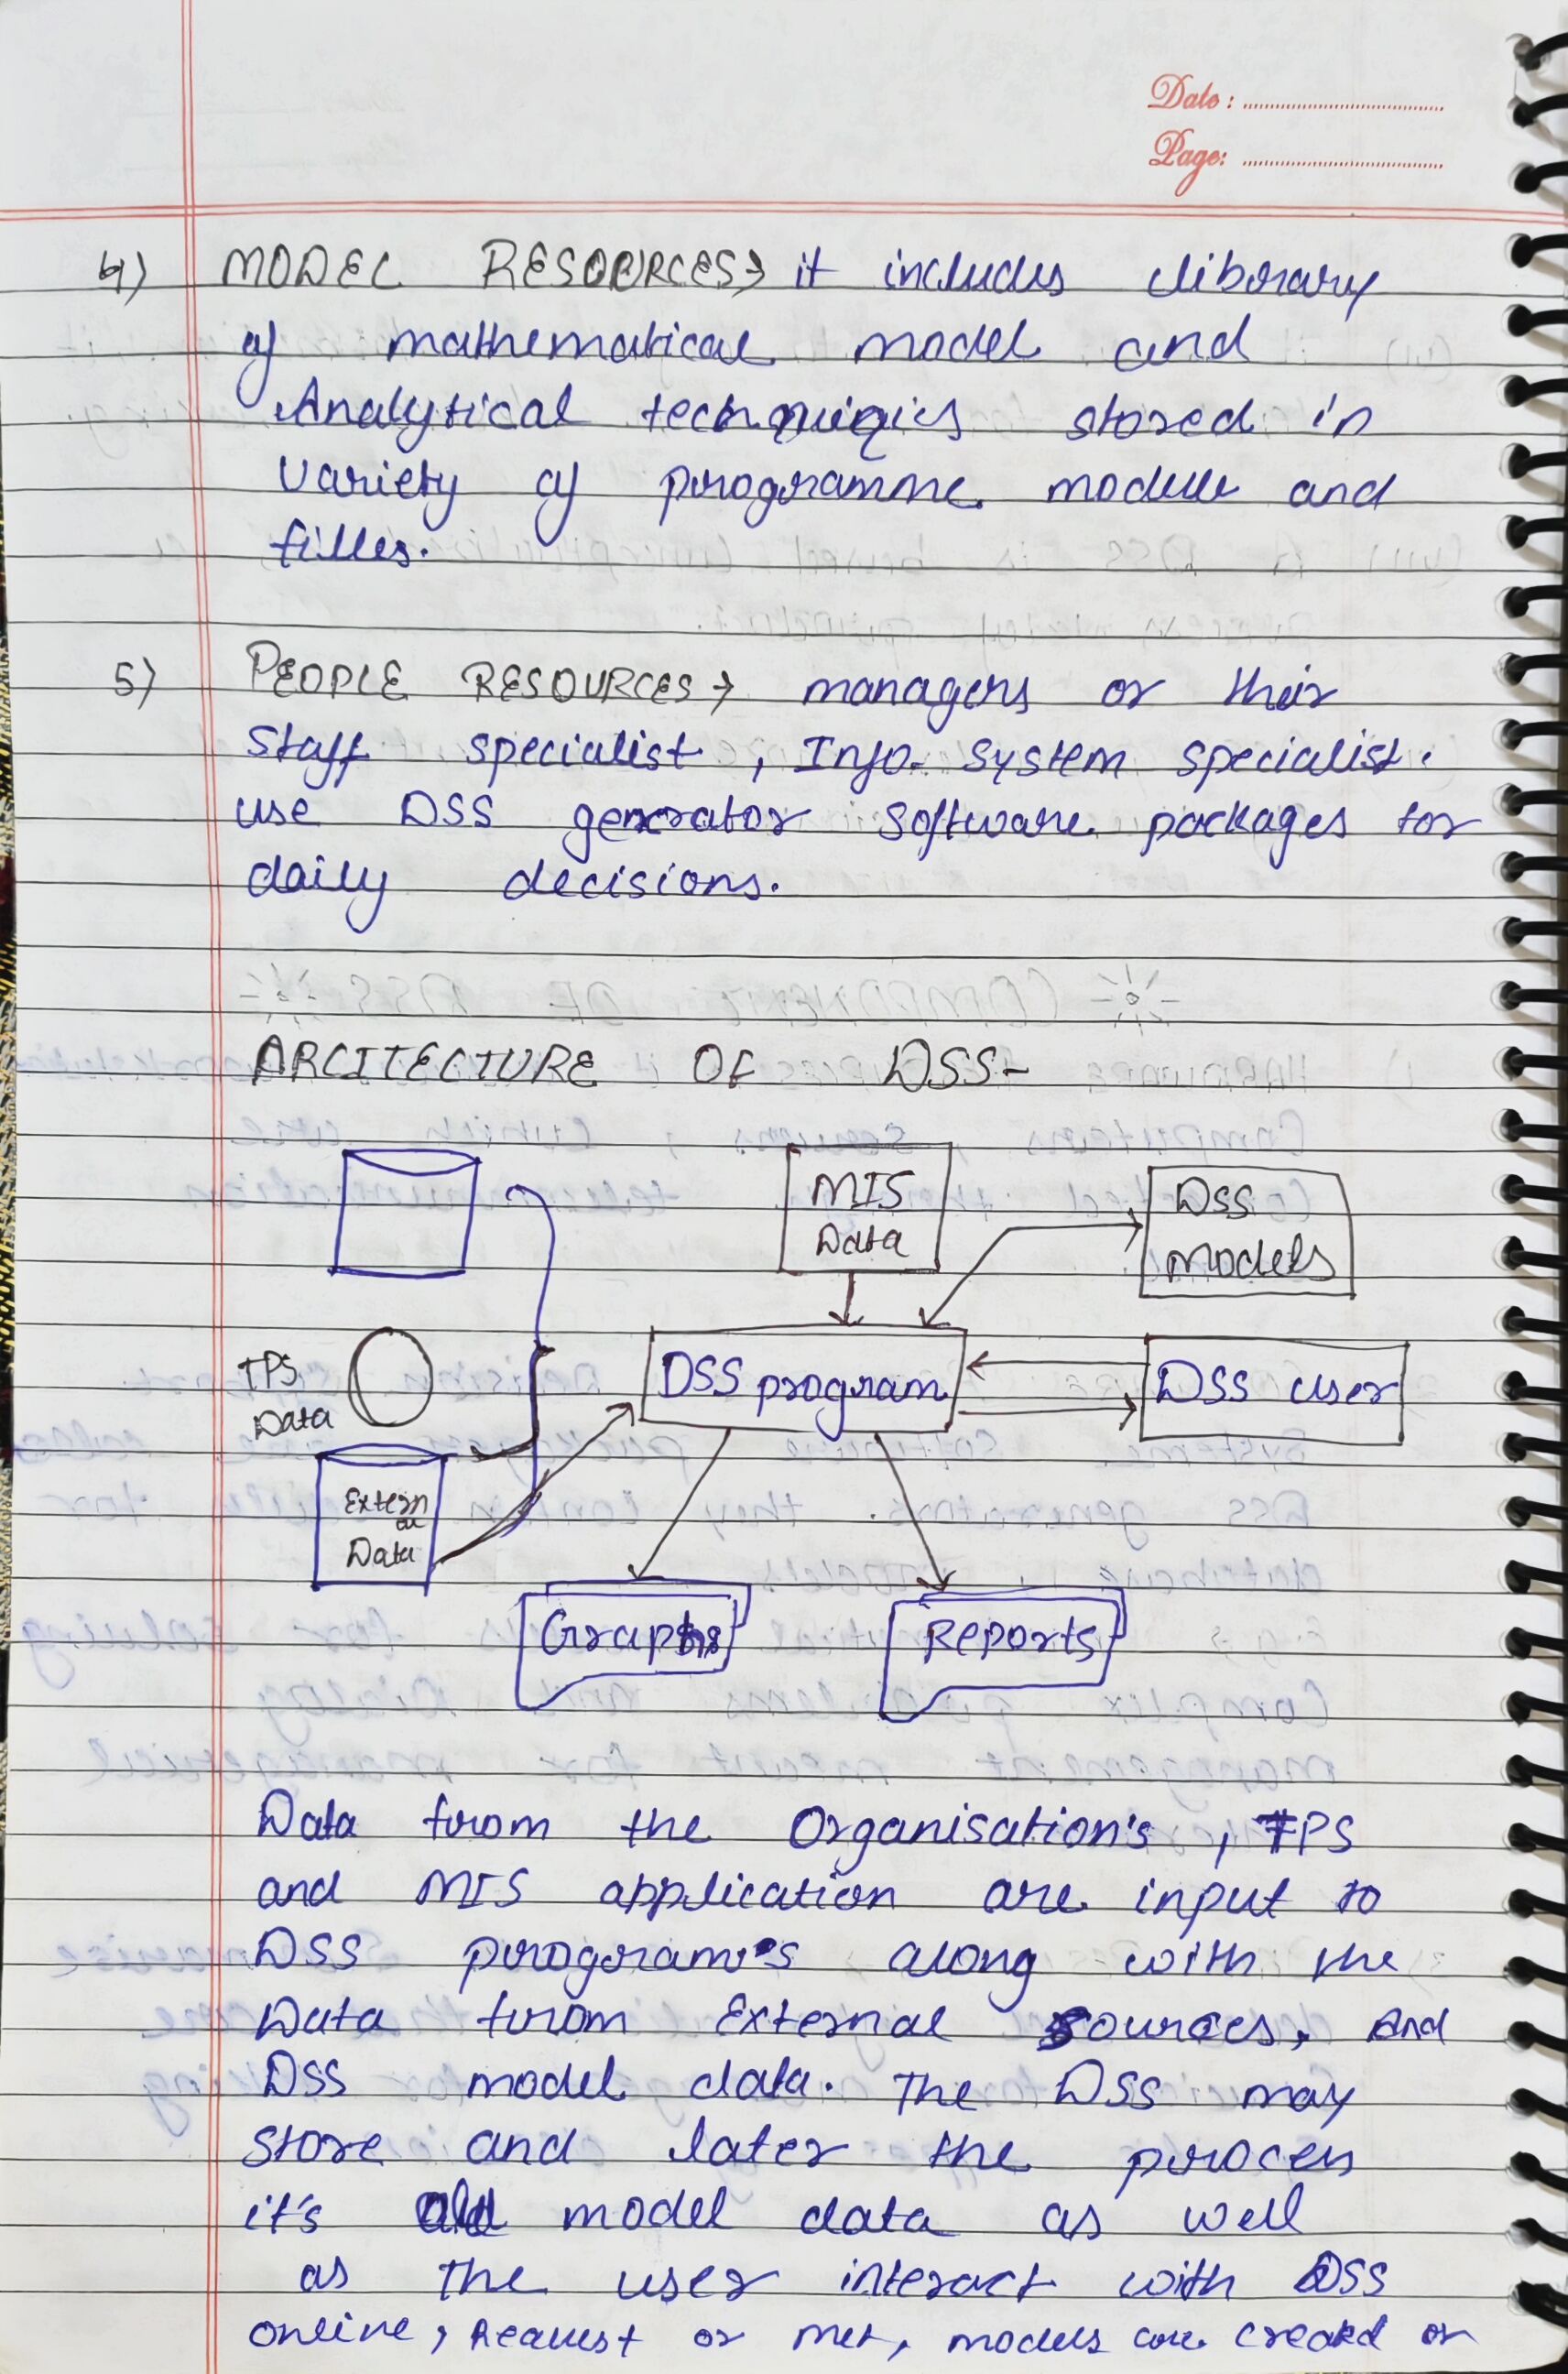 Date :
Page:
4) MODEL RESOURCES → it includes library
of mathematical model and
Analytical techniques stored in
variety of programme module and
filles.
5) PEOPLE RESOURCES → managers or their
Staff specialist, Info. System specialist.
use DSS generator software packages for
daily decisions.
ARCITECTURE OF DSS-
MIS
Data
DSS
Models
TPS
Data
DSS program
DSS user
External
Data
Graphs
Reports
Data from the Organisation's, TPS
and MIS application are input to
DSS programs along with the
Data from External sources, And
DSS model data. The DSS may
store and later the process
it's model data as well
as the user interact with DSS
online, Request or met, models are created or